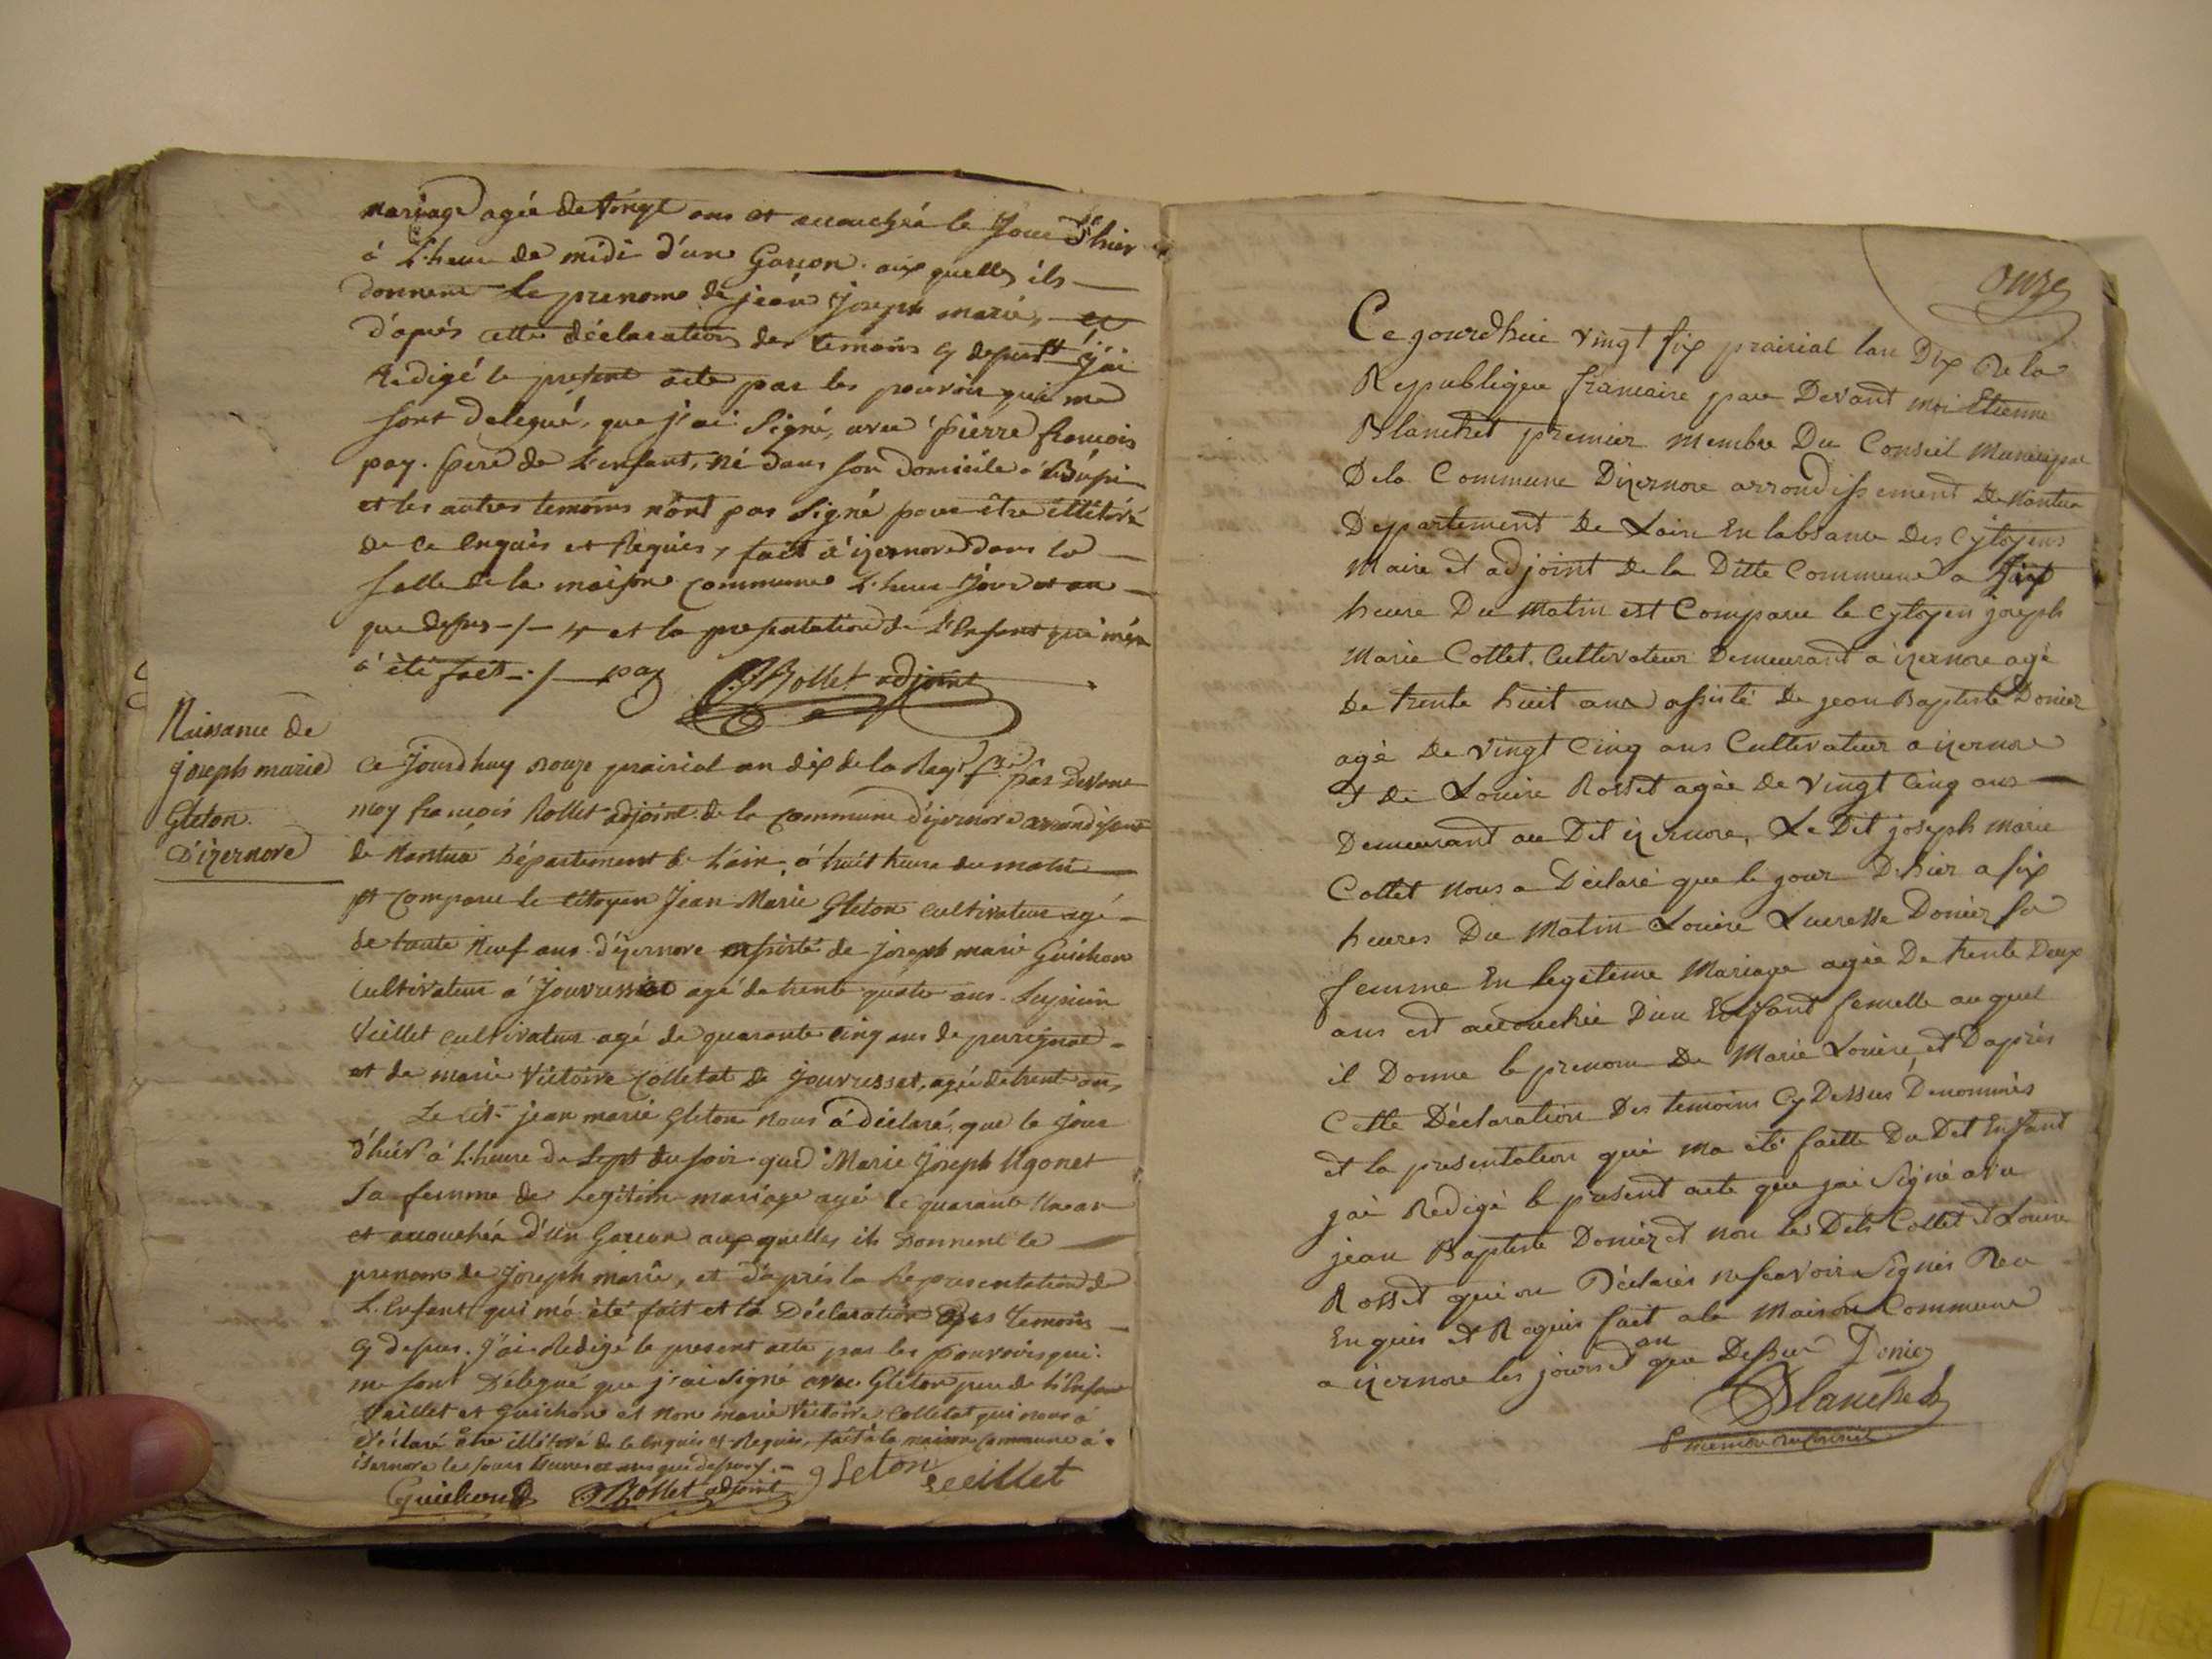 mariage agée de vingt ans et accouchée le Jour d'hier
à L'heure de midi d'un Garcon. aux quelles ils
donnent le prenoms de jean Joseph marie, et
d'après cette déclaration des temoins cy dessus j'ai
Redigé le present acte par les pouvoirs qui me
sont delegué, que j'ai Signé, avec pierre francois
pay. pere de L'enfant, né dans son domicile à
et les autres temoins n'ont pas Signé pour être illitéré
de ce enquis et Requis, fait à izernore dans la
salle de la maison commune L'heure Jour et an
que dessus -/- et la presentation de L'Enfant qui m'en
a été fait -/- pay Rollet adjoint
Naissance de
joseph marie
Gleton
D'izernore
ce Jourd'huy onze prairial an dix de la Rep. f.se par devant
moy francois Rollet adjoint de la commune d'izernore arrondissent
de Nantua Département de L'ain, à huit heure du matin
est comparu le citoyen Jean Marie Gleton cultivateur agé
de trente Neuf ans d'izernore assisté de joseph marie Guichon
cultivateur à Jouvusset agé de trente quatre ans.
Veillet cultivateur agé de quarante cinq ans de perrignat
et de marie Victoire Colletat de Jouvusset, agée de trent ans,
Le cit. jean marie Gleton Nous à déclaré, que le jour
d'hier à L'heure de Sept du soir que Marie Joseph Ugonet
Sa femme de Legitim mariage agé de quarante Un an
et accouchée d'un Garcon aux quelles ils Donnent le
prenom de Joseph marie, et d'après la Representation de
L'Enfant qui m'a été fait et la Déclaration des temoins
cy dessus. J'ai Redigé le present acte par les pouvoirs qui
me sont Délegué que j'ai Signé avec Gleton pere de L'Enfant
Veillet et Guichon et non marie Victoire Colletat qui nous à
déclaré être illitéré de ce enquis et Requis, fait à la maison commune à
izernore les jours heures et ans que dessus.
Guichon Rollet adjoint gleton veillet
onze
Ce gourdhui vingt six prairial lan Dix De la
Republique francaise pare Devant moi Etienne
Blanchet premier membre Du Conseil Municipal
De la Commune Dizernore arrondissement De Nantua
Departement De Lain En labsance Des Cytoyens
Maire et adjoint De la Ditte Commune a
heure Du Matin est Comparu le Cytoyen joseph
Marie Collet. Cultivateur Demeurant a izernore agé
De trente huit ans assisté De jean Baptiste Donier
agé De Vingt Cinq ans Cultivateur a izernore
et De Louise Rosset agée De Vingt Cinq ans
Demeurant au Dit izernore, Le Dit joseph Marie
Collet nous a Déclaré que le jour D'hier a six
heures Du Matin Louise Lucresse Donier sa
femme En legitime Mariage agée De trente Deux
ans est accouchée D'un Enfant femelle au quel
il Donne le prenom De Marie Louise, et D'après
Cette Déclaration Des temoins Cy Dessus Denommés
et la presentation qui ma eté faitte Du Dit Enfant
jai Redigé le present acte que jai Signé avec
jean Baptiste Donier et non les Dits Collet et Louise
Rosset qui on Déclarés ne scavoir Signés De ce
Enquis et Requis fait a la Maison Commune
a izernore les jours et an que Dessus Donier
Blanchet